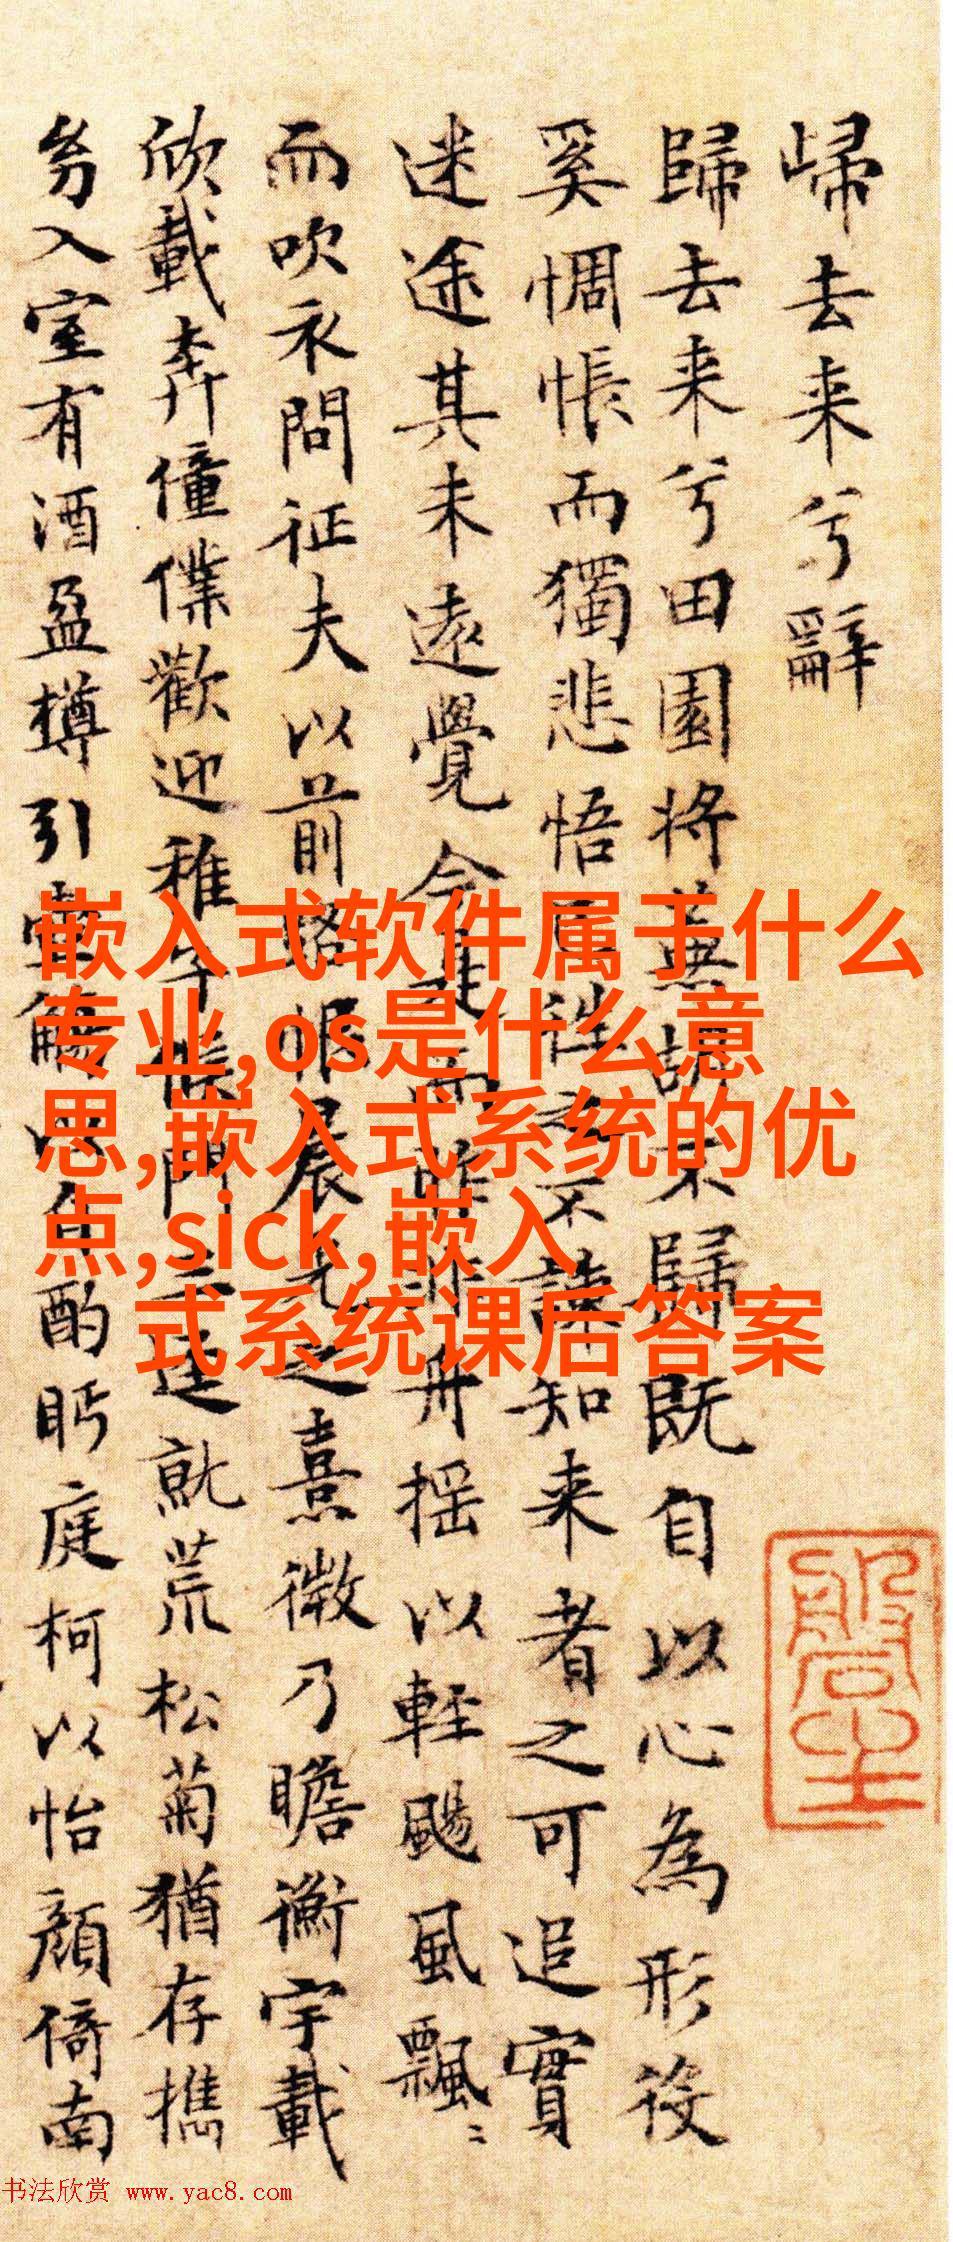 歸去来兮辭
歸去来兮田園将蕪胡不歸既自以心為形役
奚惆悵而獨悲悟已往之不諫知来者之可追實
迷途其未遠覺今是而昨非舟揺以輕颺風飄〻
而吹衣問征夫以前路恨晨光之熹微乃瞻衡宇載
欣載奔僮僕歡迎稚子候門三逕就荒松菊猶存携
幼入室有酒盈樽引壺觴以自酌眄庭柯以怡顔倚南
嵌入式软件属于什么
专业,os是什么意
思,嵌入式系统的优
点,sick,嵌入
式系统课后答案
书法欣赏 www.yac8.com